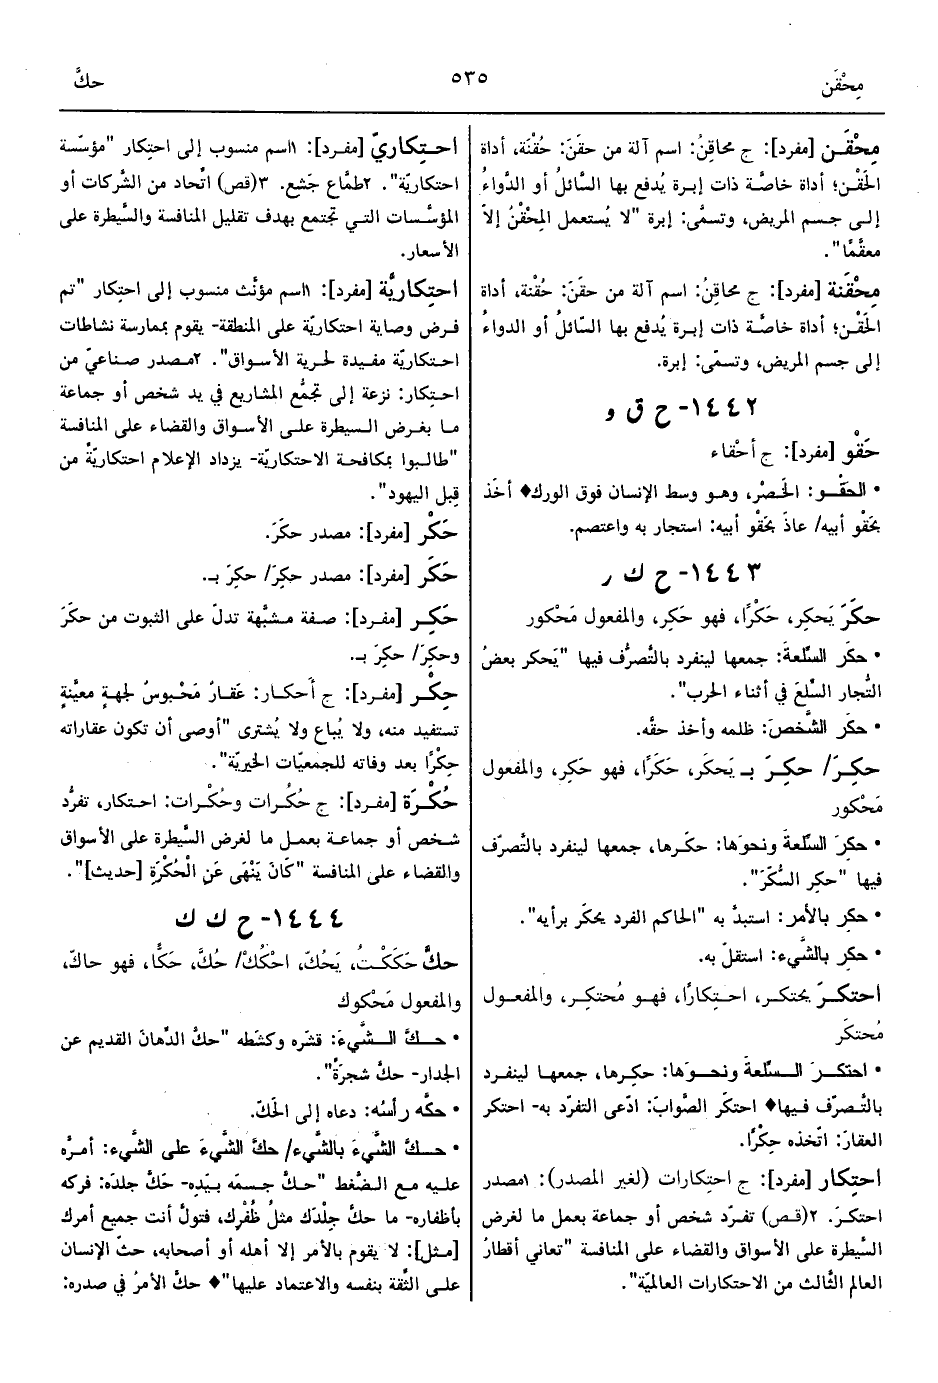 مِحْقَن
٥٣٥
حكَّ
مِحْقَـن [مفرد]: ج محاقِنُ: اسم آلة من حقَنَ: حُقْنَة، أداة
الحَقْـن؛ أداة خاصَّـة ذات إبرة يُدفع بها السَّائلُ أو الدَّواءُ
إلـى جسـم المريض، وتسمَّى: إبرة "لا يُستعمل المِحْقْنُ إلاّ
معقَّمًا".
مِحْقَنة [مفرد]: ج محاقِنُ: اسم آلة من حقَنَ: حُقْنة، أداة
الحَقْـن؛ أداة خاصَّـة ذات إبرة يُدفع بها السّائلُ أو الدواءُ
إلى جسم المريض، وتسمّى: إبرة.
١٤٤٢- ح ق و
حَقْو [مفرد]: ج أحْقاء
• الحقْـو: الخَصْر، وهـو وسط الإنسان فوق الورك♦ أخَذ
بحَقْو أبيه/ عاذَ بحَقْو أبيه: استجار به واعتصم.
١٤٤٣- ح ك ر
حكَرَ يَحكِر، حَكْرًا، فهو حَكِر، والمفعول مَحْكور
• حكَر السِّلعةَ: جمعها لينفرد بالتَّصرُّف فيها "يَحكر بعضُ
التُّجار السِّلعَ في أثناء الحرب".
• حكَر الشَّخصَ: ظلمه وأخذ حقَّه.
حكِـرَ/ حكِـرَ بـ يَحكَر، حَكَرًا، فهو حَكِر، والمفعول
مَحْكور
• حكِرَ السِّلعةَ ونحوَها: حكَرها، جمعها لينفرد بالتَّصرّف
فيها "حكِر السُّكّرَ".
• حكِر بالأمر: استبدَّ به "الحاكم الفرد يحكَر برأيه".
• حكِر بالشَّيء: استقلّ به.
احتكَـرَ يحتكـر، احـتِكارًا، فهـو مُحتكِـر، والمفعـول
مُحتكَر
• احتكـرَ السـلّعةَ ونحـوَهـا: حكـرها، جمعهـا لينفـرد
بالتَّـصرّف فـيها♦ احتكَر الصَّوابَ: ادّعى التفرّد به- احتكر
العقارَ: اتّخذه حِكْرًا.
احتِكار [مفرد]: ج احتِكارات (لغير المصدر): ١مصدر
احتكرَ. ٢(قـص) تفـرّد شخص أو جماعة بعمل ما لغرض
السَّيطرة على الأسواق والقضاء على المنافسة "تعاني أقطارُ
العالم الثَّالث من الاحتكارات العالميّة".
احـتِكاريّ [مفـرد]: ١اسم منسوب إلى احتِكار "مؤسّسة
احتكاريّة". ٢طمَّاع جَشِع. ٣(قص) اتِّحاد من الشَّركات أو
المؤسَّسات التـي تجتمع بهدف تقليل المنافسة والسَّيطرة على
الأسعار.
احتِكاريَّة [مفرد]: ١اسم مؤنَّث منسوب إلى احتِكار "تم
فـرض وصاية احتكاريّة على المنطقة- يقوم بممارسة نشاطات
احـتكاريّة مقـيدة لحرية الأسـواق". ٢مـصدر صـناعيّ من
احـتِكار: نزعة إلى تجمُّع المشاريع في يد شخص أو جماعة
مـا بغـرض السـيطرة علـى الأسـواق والقضاء على المنافسة
"طالـبوا بمكافحة الاحتكاريّة- يزداد الإعلام احتكاريّةً من
قِبل اليهود".
حَكْر [مفرد]: مصدر حكَرَ.
حَكَر [مفرد]: مصدر حكِرَ/ حكِرَ بـ.
حَكِـر [مفـرد]: صـفة مـشبَّهة تدلّ على الثبوت من حكَرَ
وحكِرَ/ حكِرَ بـ.
حِكْـر [مفـرد]: ج أحكـار: عَقـارٌ مَحْبوسٌ لجهةٍ معيَّنةٍ
تستفيد منه، ولا يُباع ولا يُشترى "أوصى أن تكون عقاراته
حِكْرًا بعد وفاته للجمعيّات الخيريّة".
حُكْـرَة [مفـرد]: ج حُكُـرات وحُكْـرات: احـتكار، تفرُّد
شـخص أو جماعـة بعمـل ما لغرض السَّيطرة على الأسواق
والقضاء على المنافسة "كَانَ يَنْهَى عَنِ الْحُكْرَةِ [حديث]".
١٤٤٤- ح ك ك
حكَّ حَكَكْـتُ، يَحُكّ، احْكُكْ/ حُكَّ، حَكًّا، فهو حاكّ،
والمفعول مَحْكوك
• حـكَّ الـشَّيءَ: قشَره وكشَطه "حكَّ الدِّهانَ القديم عن
الجدار- حكَّ شجرةً".
• حكَّه رأسُه: دعاه إلى الحَكّ.
• حـكَّ الشَّيءَ بالشَّيء/ حكَّ الشَّيءَ على الشَّيء: أمـرَّه
علـيه مـع الـضَّغط "حـكَّ جسـمَه بيَدِه- حَكَّ جلدَه: فركه
بأظفاره- ما حكَّ جلْدَك مثلُ ظُفْرِك، فتولَّ أنت جميع أمرك
[مـثل]: لا يقوم بالأمر إلا أهله أو أصحابه، حثّ الإنسان
علـى الثَّقة بنفسه والاعتماد عليها"♦ حكَّ الأمرُ في صدره: